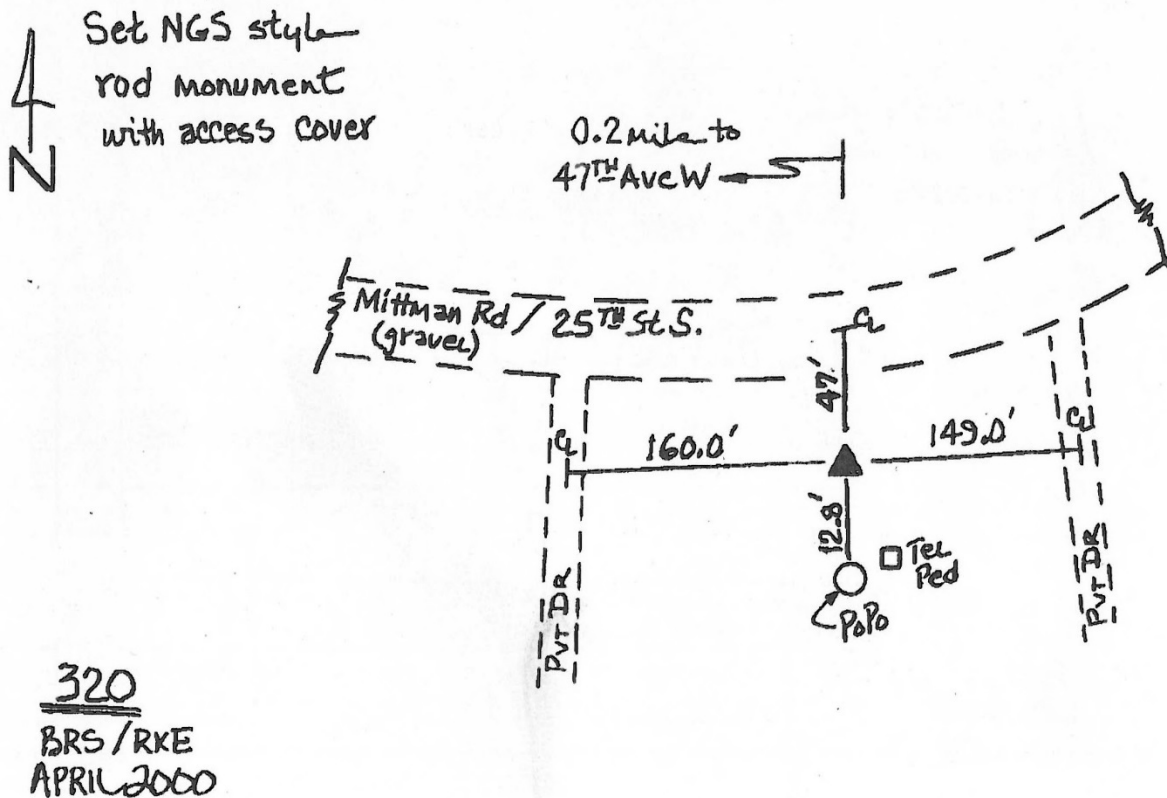 Set NGS style
rod monument
with access cover
N
0.2 mile to
47TH Ave W
Mittman Rd / 25TH St S.
(gravel)
CL
47'
CL
160.0'
149.0'
CL
12.8'
Tel
Ped
PoPo
Pvt DR
Pvt DR
320
BRS / RKE
APRIL 2000